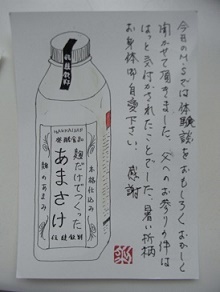 今日のM.Sでは体験談をおもしろくおかしく
聞かせて頂きました。父へのお参りの件は
はっと気付かされたことでした。暑い折柄
お身体御自愛下さい。 感謝
HAKKAISAN
発酵食品
麹だけでつくった
あまさけ
本格仕込み
麹のあまみ